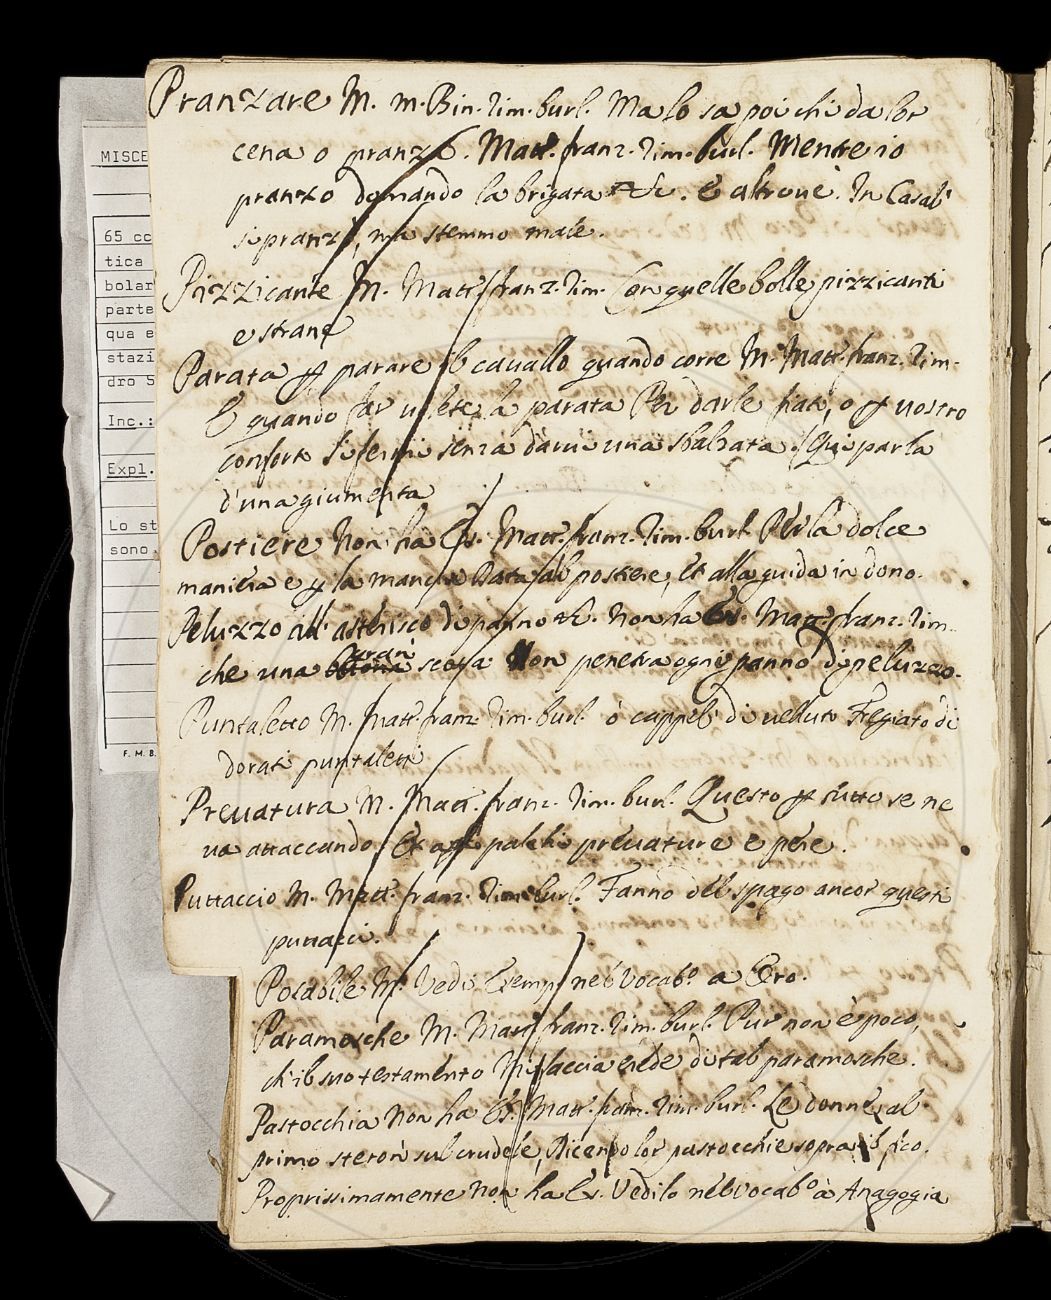 Pranzare M. m. Bin. rim. burl. Ma lo sa poi chi da lor
cena o pranzo. Matt. franz. rim. burl. Mentre io
pranzo domando la brigata &c. E altrove. In Casal'
si pranzò, ma stemmo male.
Pizzicante M. Matt. franz. rim. Con quelle bolle pizzicanti
e strane
Parata parare il cavallo quando corre M. Matt. franz. rim.
E quando far volete la parata Per darle fiato, o vostro
conforto Si fermi senza darvi una sbalzata. Qui parla
d'una giumenta
Postiere Non ha Es. Matt. franz. rim. burl. Per la dolce
maniera e la mancia Data al postiere, et alla guida in dono.
Peluzzo all' asterisco di panno &c. Non ha Es. Matt. franz. rim.
che una scopa Non penetra ogni panno di peluzzo.
Puntaletto M. Matt. franz. rim. burl. ò cappel' di velluto Fregiato di
dorati puntaletti
Prevatura M. Matt. franz. rim. burl. Questo tutto se ne
va attaccando Et a palchi prevature e pere.
Puttaccio M. Matt. franz. rim. burl. Fanno del spago ancor questi
puttacci.
Posabile M. Vedi Esemp. nel Vocab.º a Ero.
Paramosche M. Matt. franz. rim. burl. Pur non è poco,
ch'il suo testamento Mi faccia erede di tal paramosche.
Pastocchia Non ha Es. Matt. franz. rim. burl. Le donne al
primo steron sul crudele, Dicendo lor pastocchie sopra il fico.
Proprissimamente Non ha Es. Vedilo nel Vocab.º à Anagogia
MISCE
65 cc
tica
bolar
parte
qua e
stazi
dro S
Inc.:
Expl.
Lo st
sono
F. M. B.